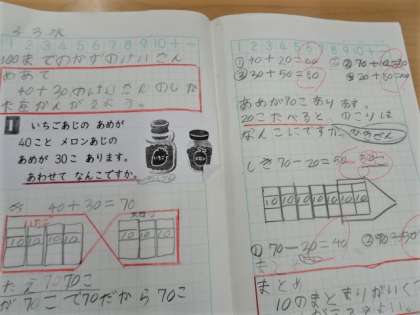 3 3 水
1 2 3 4 5 6 7 8 9 10 + −
100までのかずのけいさん
めあて
40+30のけいさんのしか
たをかんがえよう。
1
いちごあじの あめが
40こと メロンあじの
あめが 30こ あります。
あわせて なんこですか。
いちご
40+30=70
いちご
10 10 10 10
10 10 10
こたえ 70こ
が70こで70だから 70こ
1 2 3 4 5 6 7 8 9 10 + −
① 40+20=60
② 70+10=80
③ 30+50=80
④ 20+50=70
あめが70こあります。
20こたべると、のこりは
なんこですか。
しき 70−20=50
10 10 10 10 10
① 70−30=40
まとめ
10のまとまりがいく